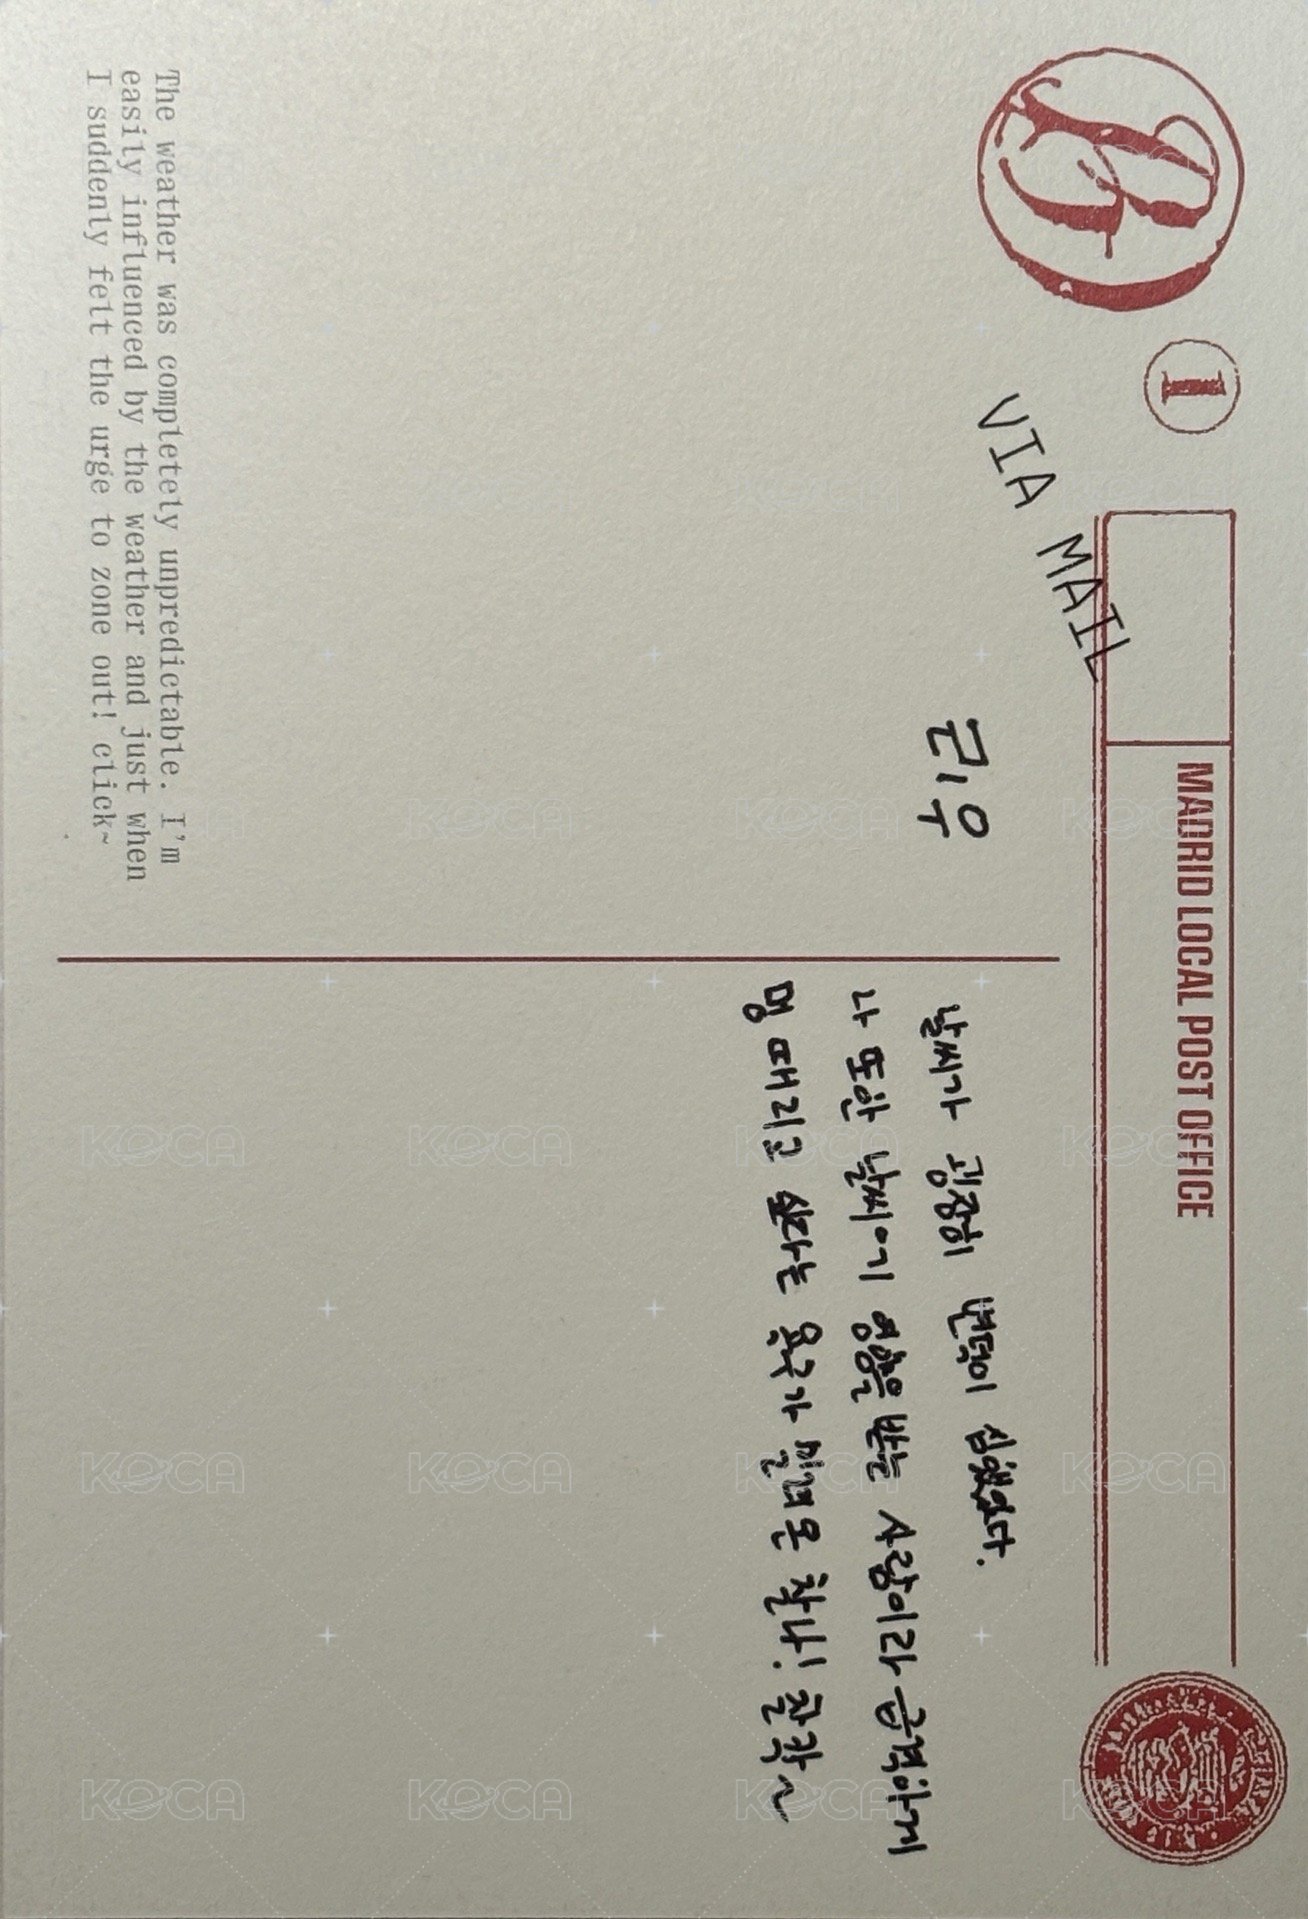 1
MADRID LOCAL POST OFFICE
VIA MAIL
리우
날씨가 굉장히 변덕이 심했었다.
나 또한 날씨에 영향을 받는 사람이라 급격하게
멍 때리고 싶다는 욕구가 밀려온 찰나! 찰칵~
The weather was completely unpredictable. I'm
easily influenced by the weather and just when
I suddenly felt the urge to zone out! click~
KOCA